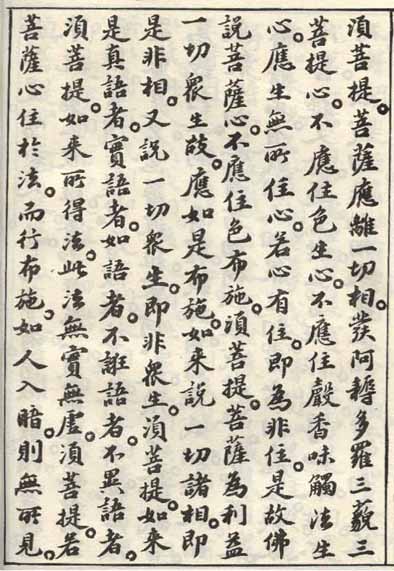 須菩提。菩薩應離一切相。發阿耨多羅三藐三
菩提心。不應住色生心。不應住聲香味觸法生
心。應生無所住心。若心有住。即為非住。是故佛
說菩薩心。不應住色布施。須菩提。菩薩為利益
一切衆生故。應如是布施。如来說一切諸相。即
是非相。又說一切衆生。即非衆生。須菩提。如来
是真語者。實語者。如語者。不誑語者。不異語者。
須菩提。如来所得法。此法無實無虛。須菩提。若
菩薩心住於法。而行布施。如人入暗。則無所見。